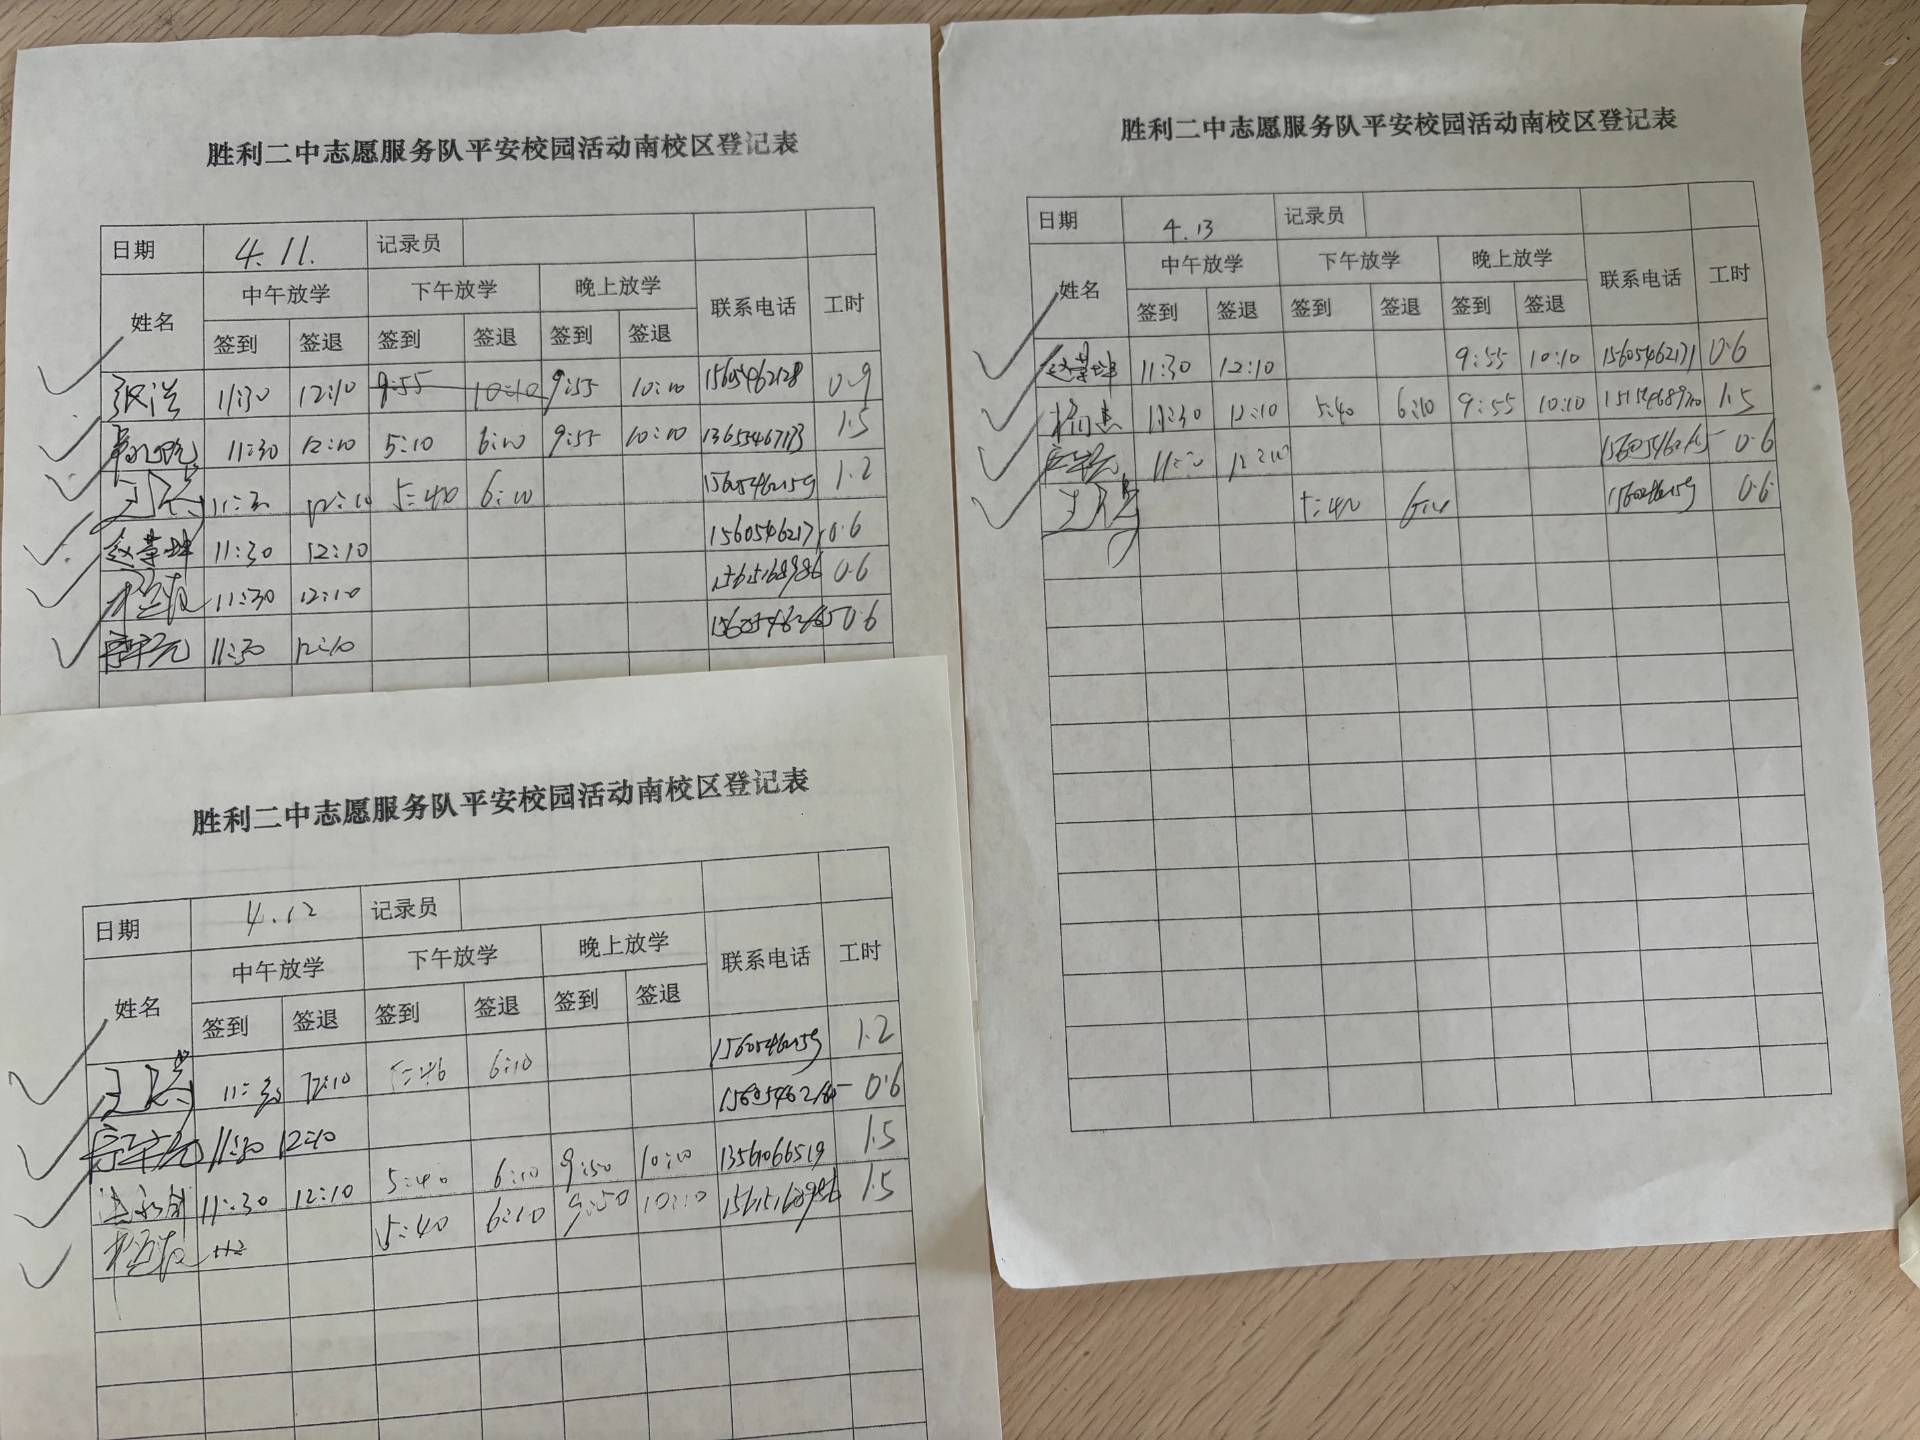 胜利二中志愿服务队平安校园活动南校区登记表
日期 4.11. 记录员
姓名 中午放学 下午放学 晚上放学 联系电话 工时
签到 签退 签到 签退 签到 签退
张洪 11:30 12:10 9:55 10:10 9:55 10:10 15605462128 0.9
11:30 12:10 5:10 6:10 9:55 10:10 1.5
11:30 12:10 5:40 6:10 15605462159 1.2
赵营坤 11:30 12:10 15605462171 0.6
11:30 12:10 15615168986 0.6
11:30 12:10 0.6
胜利二中志愿服务队平安校园活动南校区登记表
日期 4.12 记录员
姓名 中午放学 下午放学 晚上放学 联系电话 工时
签到 签退 签到 签退 签到 签退
11:30 12:10 5:40 6:10 15605462159 1.2
11:30 12:10 0.6
11:30 12:10 5:40 6:10 9:50 10:10 1.5
5:40 6:10 9:50 10:10 15615168986 1.5
胜利二中志愿服务队平安校园活动南校区登记表
日期 4.13 记录员
姓名 中午放学 下午放学 晚上放学 联系电话 工时
签到 签退 签到 签退 签到 签退
赵营坤 11:30 12:10 9:55 10:10 15605462171 0.6
11:30 12:10 5:40 6:10 9:55 10:10 1.5
11:30 12:10 0.6
5:40 6:10 0.6